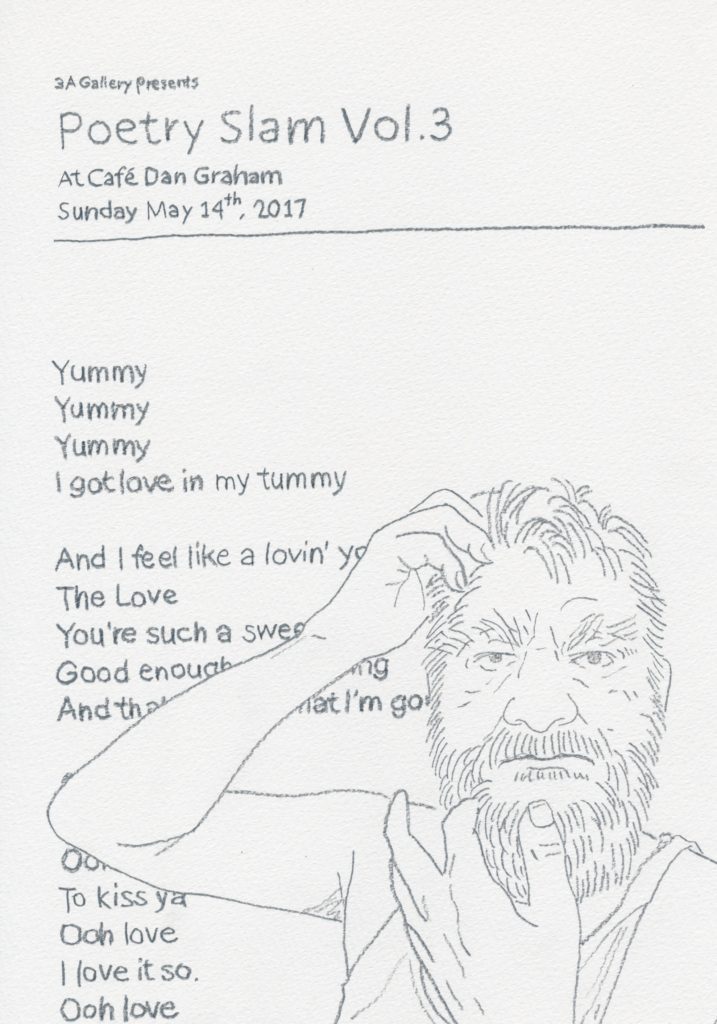 3A Gallery Presents
Poetry Slam Vol.3
At Café Dan Graham
Sunday May 14th, 2017
Yummy
Yummy
Yummy
I got love in my tummy
And I feel like a lovin'
The Love
You're such a
Good enough
I'm
To kiss ya
Ooh love
I love it so.
Ooh love